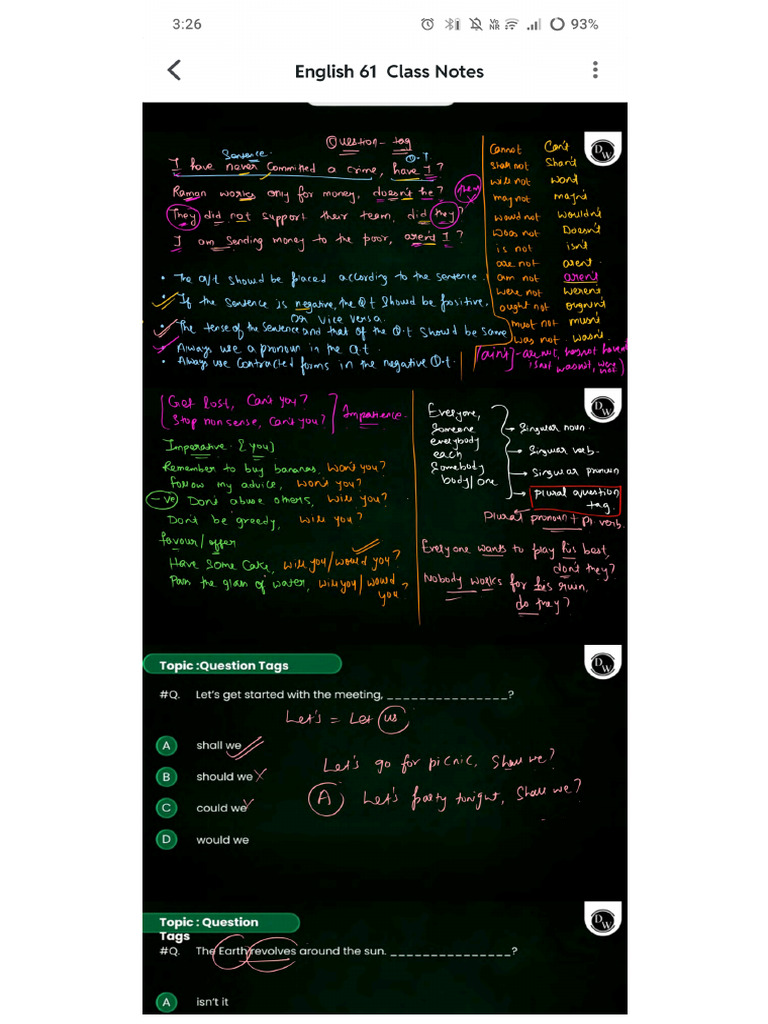 3:26
Vo NR
93%
English 61 Class Notes
Question-tag
Sentence.
Q.T
I have never committed a crime, have I?
Raman works only for money, doesn't he?
They did not support their team, did they?
I am sending money to the poor, aren't I?
• The q/t should be placed according to the sentence.
• If the sentence is negative, the Q t should be positive,
or vice versa.
• The tense of the sentence and that of the Q.t should be same
• Always use a pronoun in the q.t.
• Always use contracted forms in the negative Q.t.
Cannot Can't
Shall not Shan't
will not won't
may not mayn't
would not wouldn't
Does not Doesn't
is not isn't
are not aren't
am not aren't
were not weren't
ought not oughtn't
must not musn't
was not wasn't
DW
Get lost, Can't you?
Stop nonsense, can't you?
Impatience
Imperative [you]
Remember to buy bananas, won't you?
follow my advice, won't you?
-ve Don't abuse others, will you?
Don't be greedy, will you?
favour/offer
Have some cake, will you/would you?
Pass the glass of water, will you/would you?
Everyone,
Someone
everybody
each
Somebody
body/one
Singular noun.
Singular verb.
Singular pronoun
plural question tag.
Plural pronoun + Pl verb.
Everyone wants to play his best,
don't they?
Nobody works for his ruin,
do they?
DW
Topic :Question Tags
DW
#Q. Let's get started with the meeting, ________________?
Let's = Let us
A shall we
B should we
C could we
D would we
Let's go for picnic, Shall we?
A Let's party tonight, Shall we?
Topic : Question
Tags
DW
#Q. The Earth revolves around the sun. ________________?
A isn't it